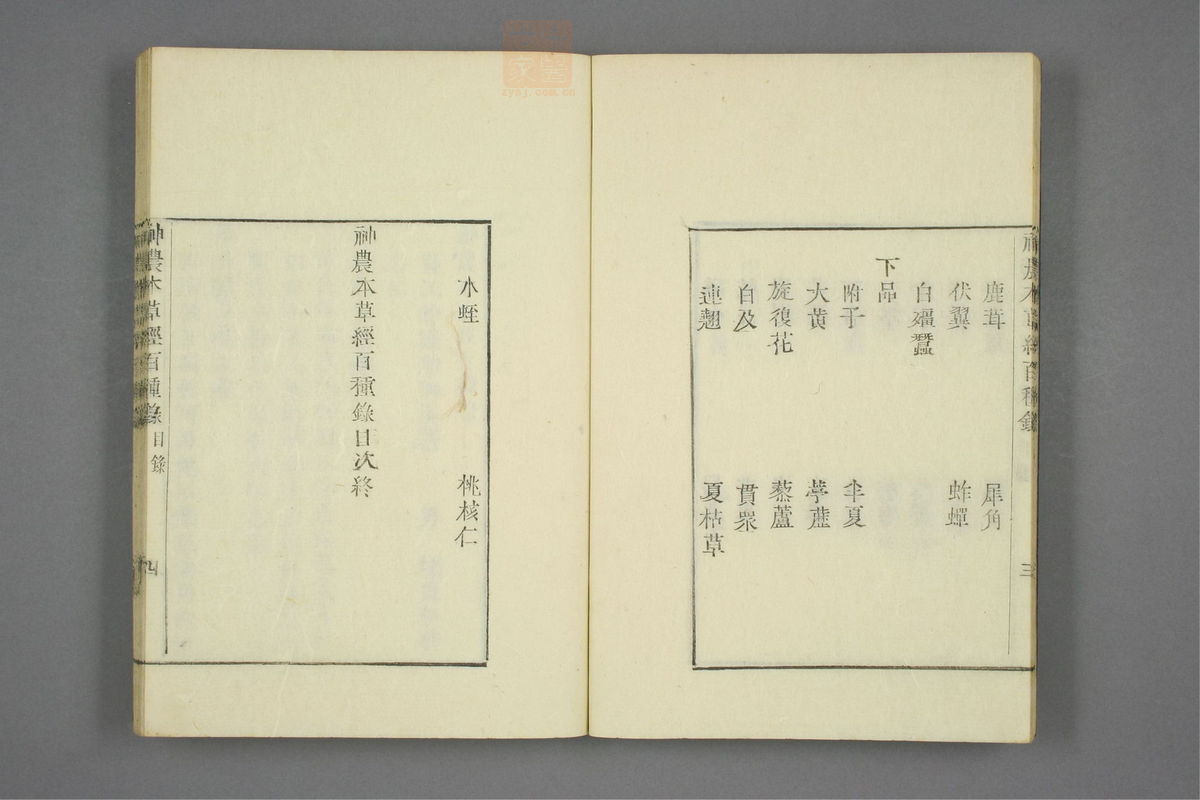 神農本草經百種錄
三
鹿茸 犀角
伏翼 蚱蟬
白殭蠶
下品
附子 半夏
大黃 葶藶
旋復花 藜蘆
白及 貫眾
連翹 夏枯草
水蛭 桃核仁
神農本草經百種錄目次終
神農本草經百種錄 目錄
四
zysj.com.cn